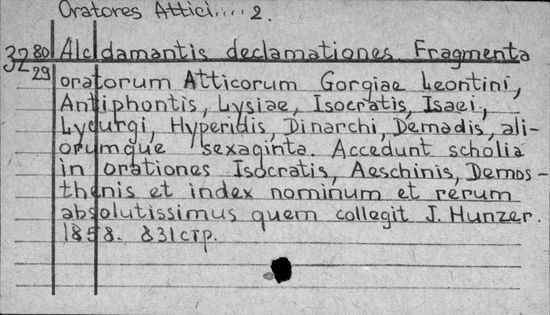 Oratores Attici.... 2.
32 80 Alcidamantis declamationes. Fragmenta
29 oratorum Atticorum Gorgiae Leontini,
Antiphontis, Lysiae, Isocratis, Isaei,
Lycurgi, Hyperidis, Dinarchi, Demadis, ali-
orumque sexaginta. Accedunt scholia
in orationes Isocratis, Aeschinis, Demos-
thenis et index nominum et rerum
absolutissimus quem collegit J. Hunzer.
1858. 831 стр.